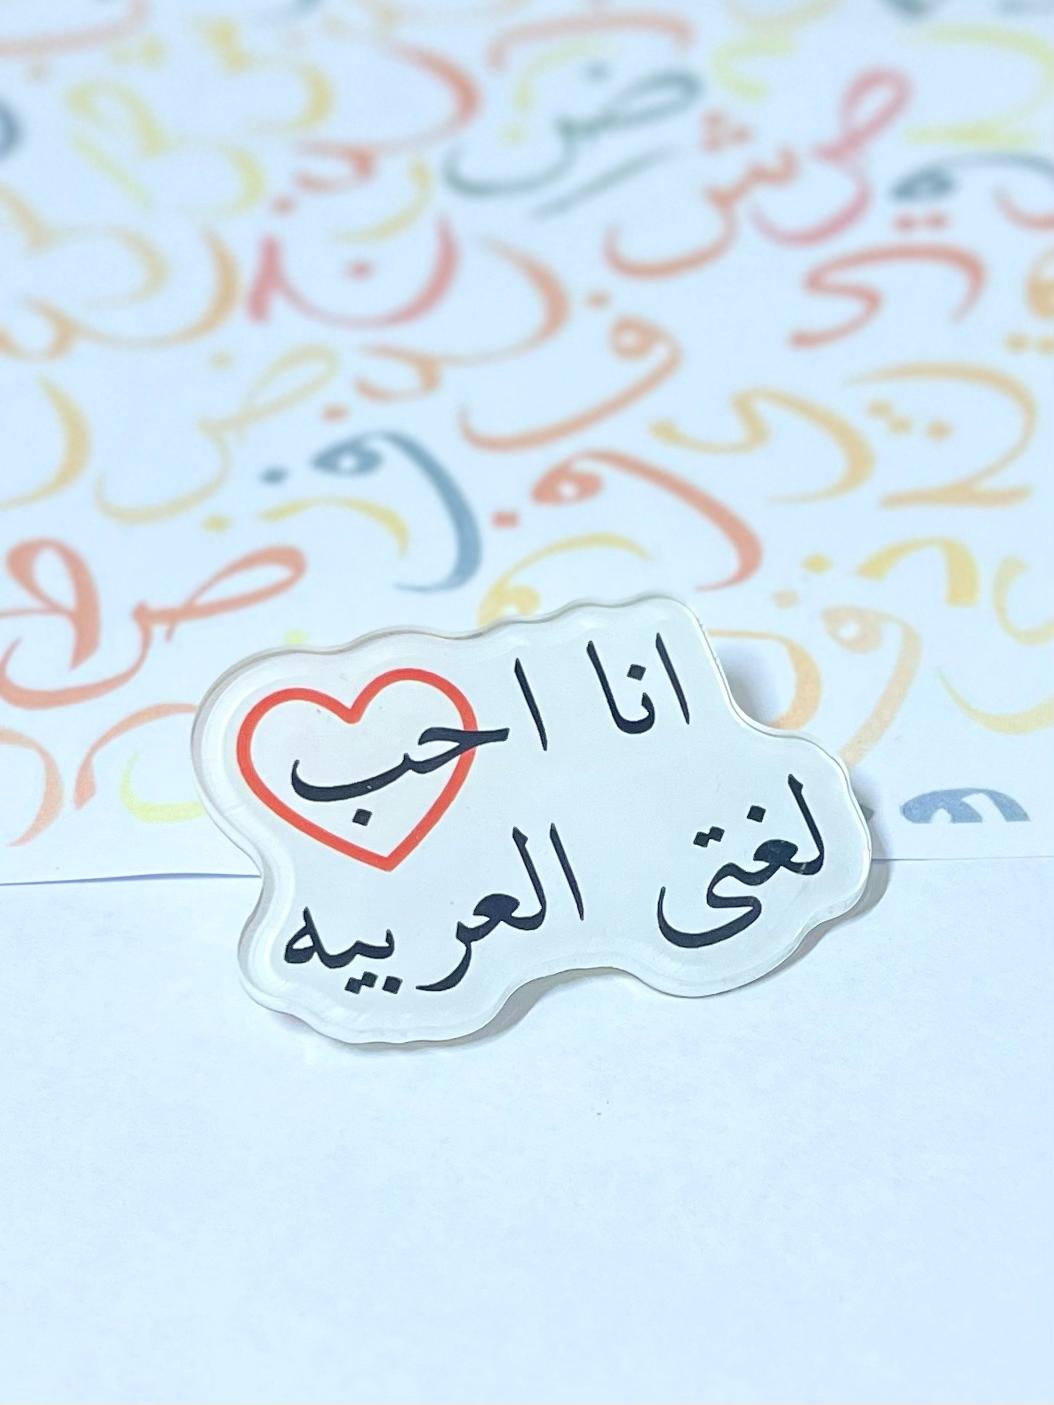 انا احب
لغتى العربيه